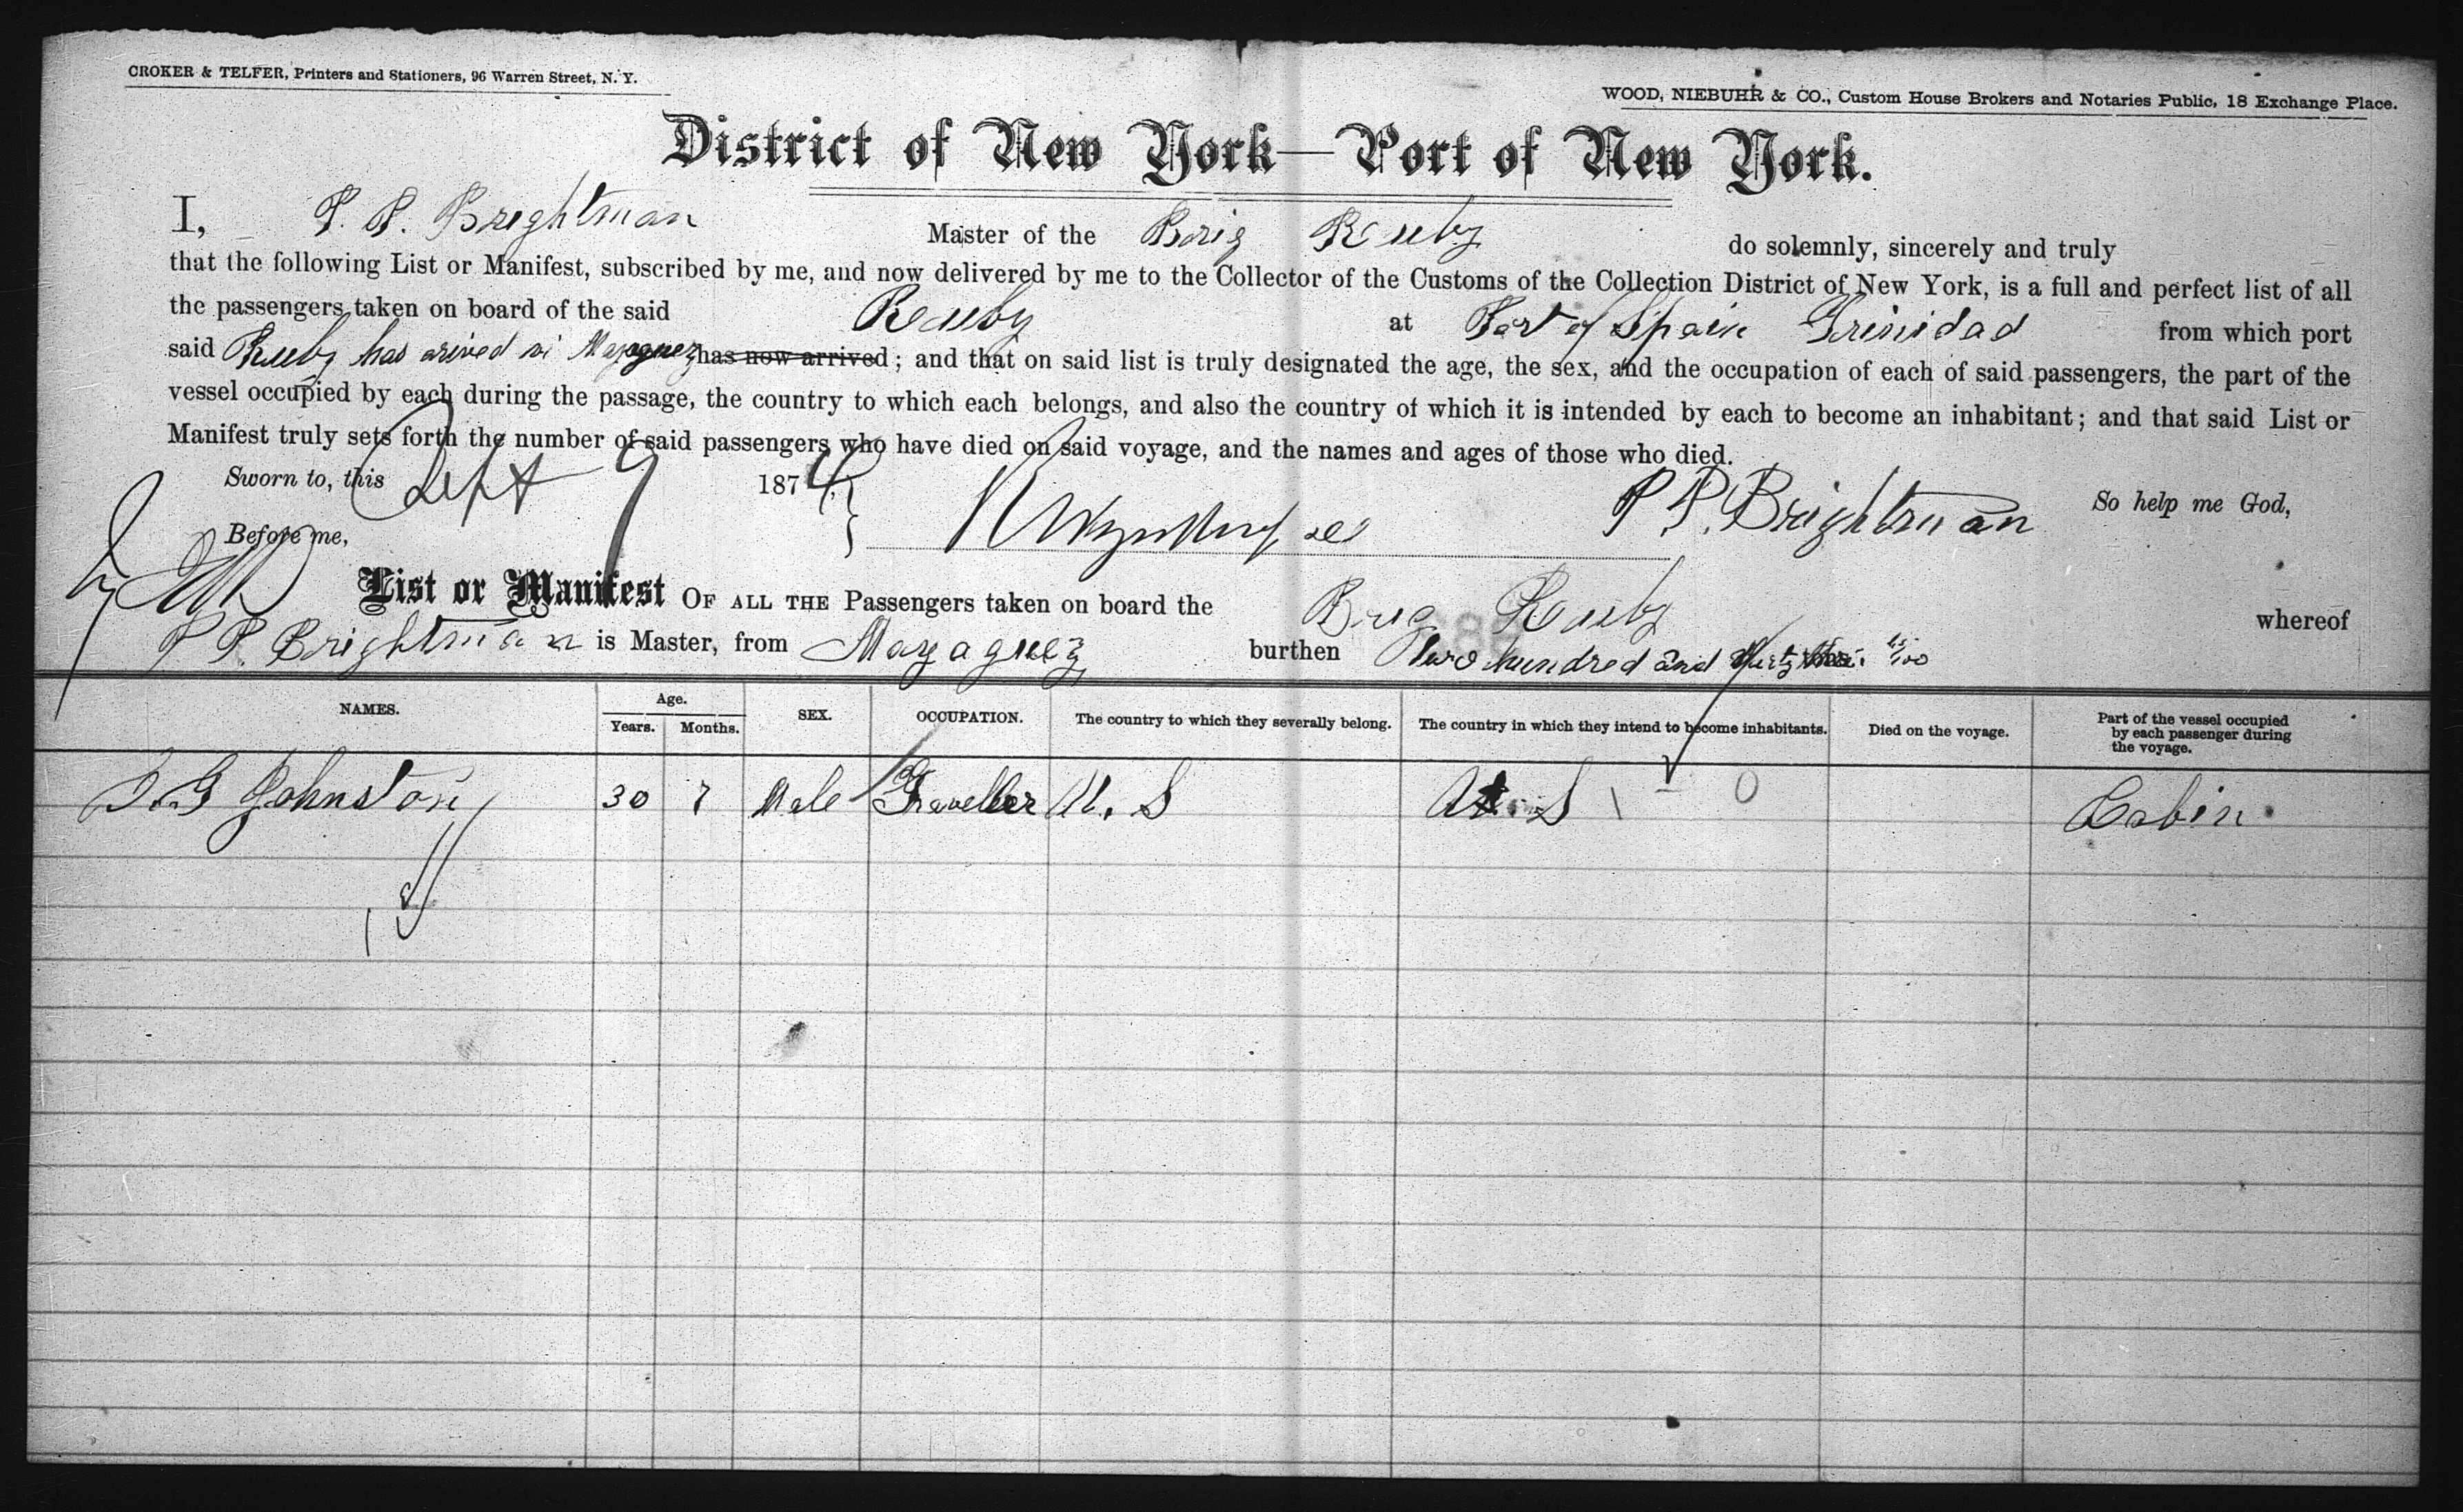 CROKER & TELFER, Printers and Stationers, 96 Warren Street, N. Y.
WOOD, NIEBUHR & CO., Custom House Brokers and Notaries Public, 18 Exchange Place.
District of New York—Port of New York.
I, P. P. Brightman Master of the Brig Reuby do solemnly, sincerely and truly
that the following List or Manifest, subscribed by me, and now delivered by me to the Collector of the Customs of the Collection District of New York, is a full and perfect list of all
the passengers taken on board of the said Reuby at Port of Spain Trinidad from which port
said Reuby has arived Mayaguez has now arrived; and that on said list is truly designated the age, the sex, and the occupation of each of said passengers, the part of the
vessel occupied by each during the passage, the country to which each belongs, and also the country of which it is intended by each to become an inhabitant; and that said List or
Manifest truly sets forth the number of said passengers who have died on said voyage, and the names and ages of those who died.
Sworn to, this Sept 9 1874, P. P. Brightman So help me God,
Before me,
List or Manifest OF ALL THE Passengers taken on board the Brig Reuby whereof
P P. Brightman is Master, from Mayaguez burthen Two hundred and
NAMES. Age. Years. Months. SEX. OCCUPATION. The country to which they severally belong. The country in which they intend to become inhabitants. Died on the voyage. Part of the vessel occupied by each passenger during the voyage.
Johnston 30 7 Male Traveller U. S U. S Cabin